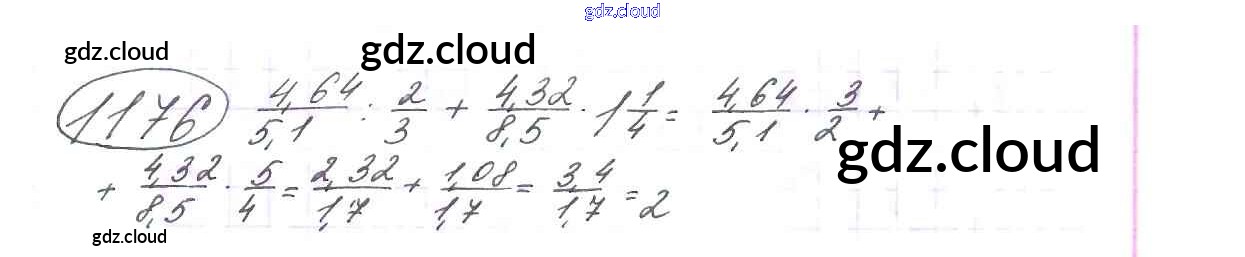 gdz.cloud
gdz.cloud gdz.cloud
1176 4,64/5,1 : 2/3 + 4,32/8,5 · 1 1/4 = 4,64/5,1 · 3/2 +
gdz.cloud
+ 4,32/8,5 · 5/4 = 2,32/1,7 + 1,08/1,7 = 3,4/1,7 = 2
gdz.cloud